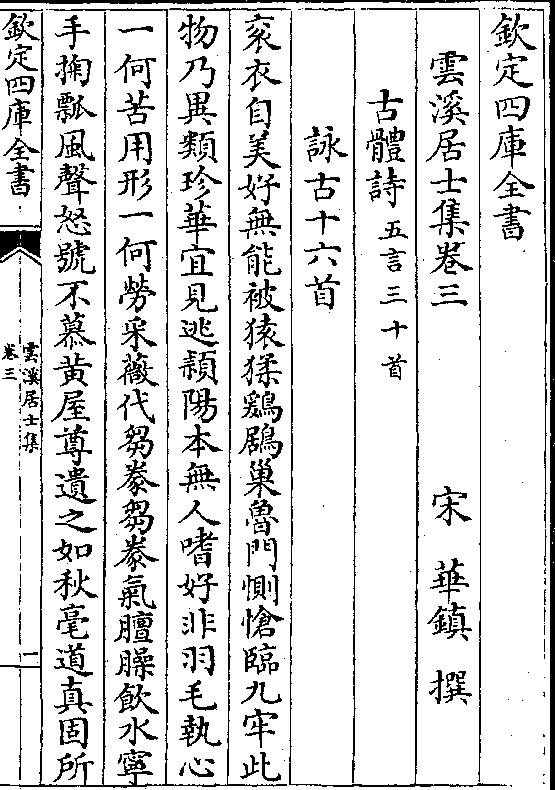 欽定四庫全書
雲溪居士集卷三
宋　華鎮　撰
古體詩五言三十首
詠古十六首
袞衣自美好無能被猿猱鷄鶋巢魯門惻愴臨九牢此
物乃異類珍華宜見逃潁陽本無人嗜好非羽毛執心
一何苦用形一何勞采薇代芻豢芻豢氣膻臊飲水寧
手掬瓢風聲怒號不慕黃屋尊遺之如秋毫道真固所
欽定四庫全書
雲溪居士集
卷三
一